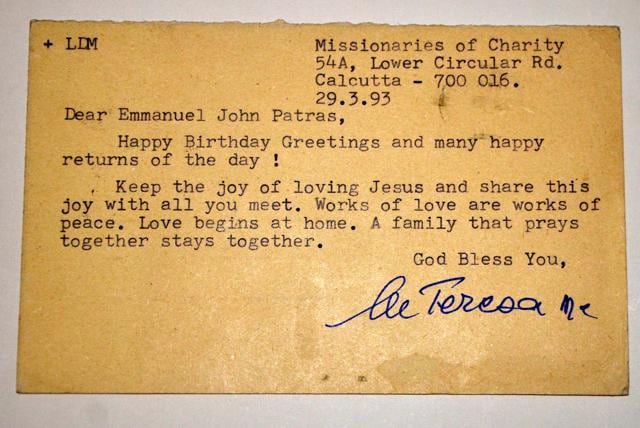 + LDM
Missionaries of Charity
54A, Lower Circular Rd.
Calcutta - 700 016.
29.3.93
Dear Emmanuel John Patras,
Happy Birthday Greetings and many happy
returns of the day !
Keep the joy of loving Jesus and share this
joy with all you meet. Works of love are works of
peace. Love begins at home. A family that prays
together stays together.
God Bless You,
Teresa mc